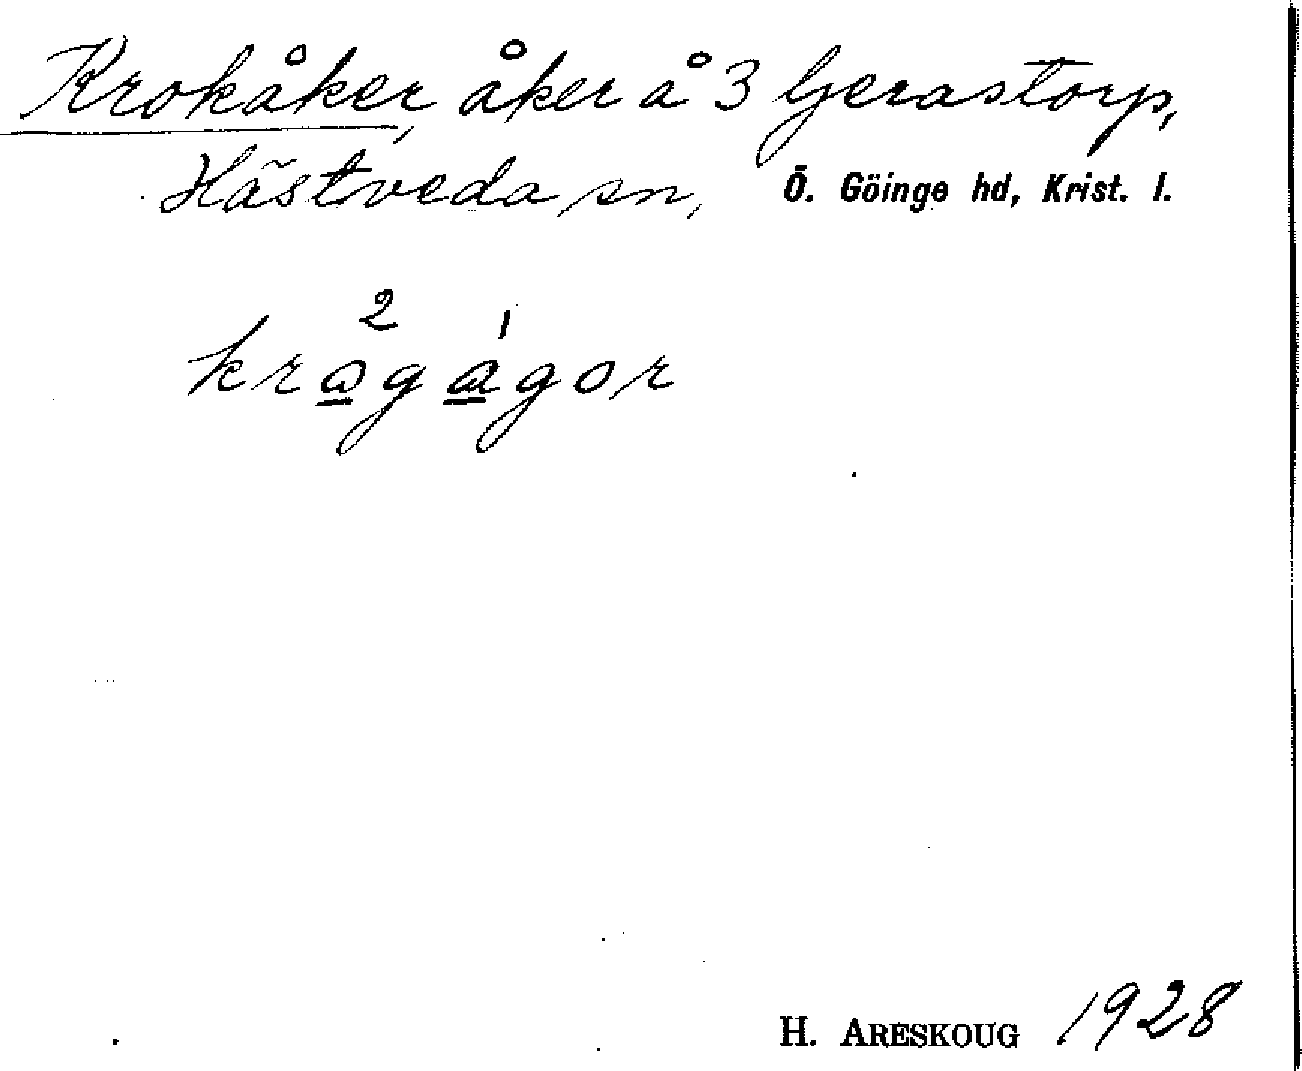 Krokåker, åker å 3 Gerastorp,
Hästveda sn, Ö. Göinge hd, Krist. l.
2 1
krωgágor
H. ARESKOUG 1928